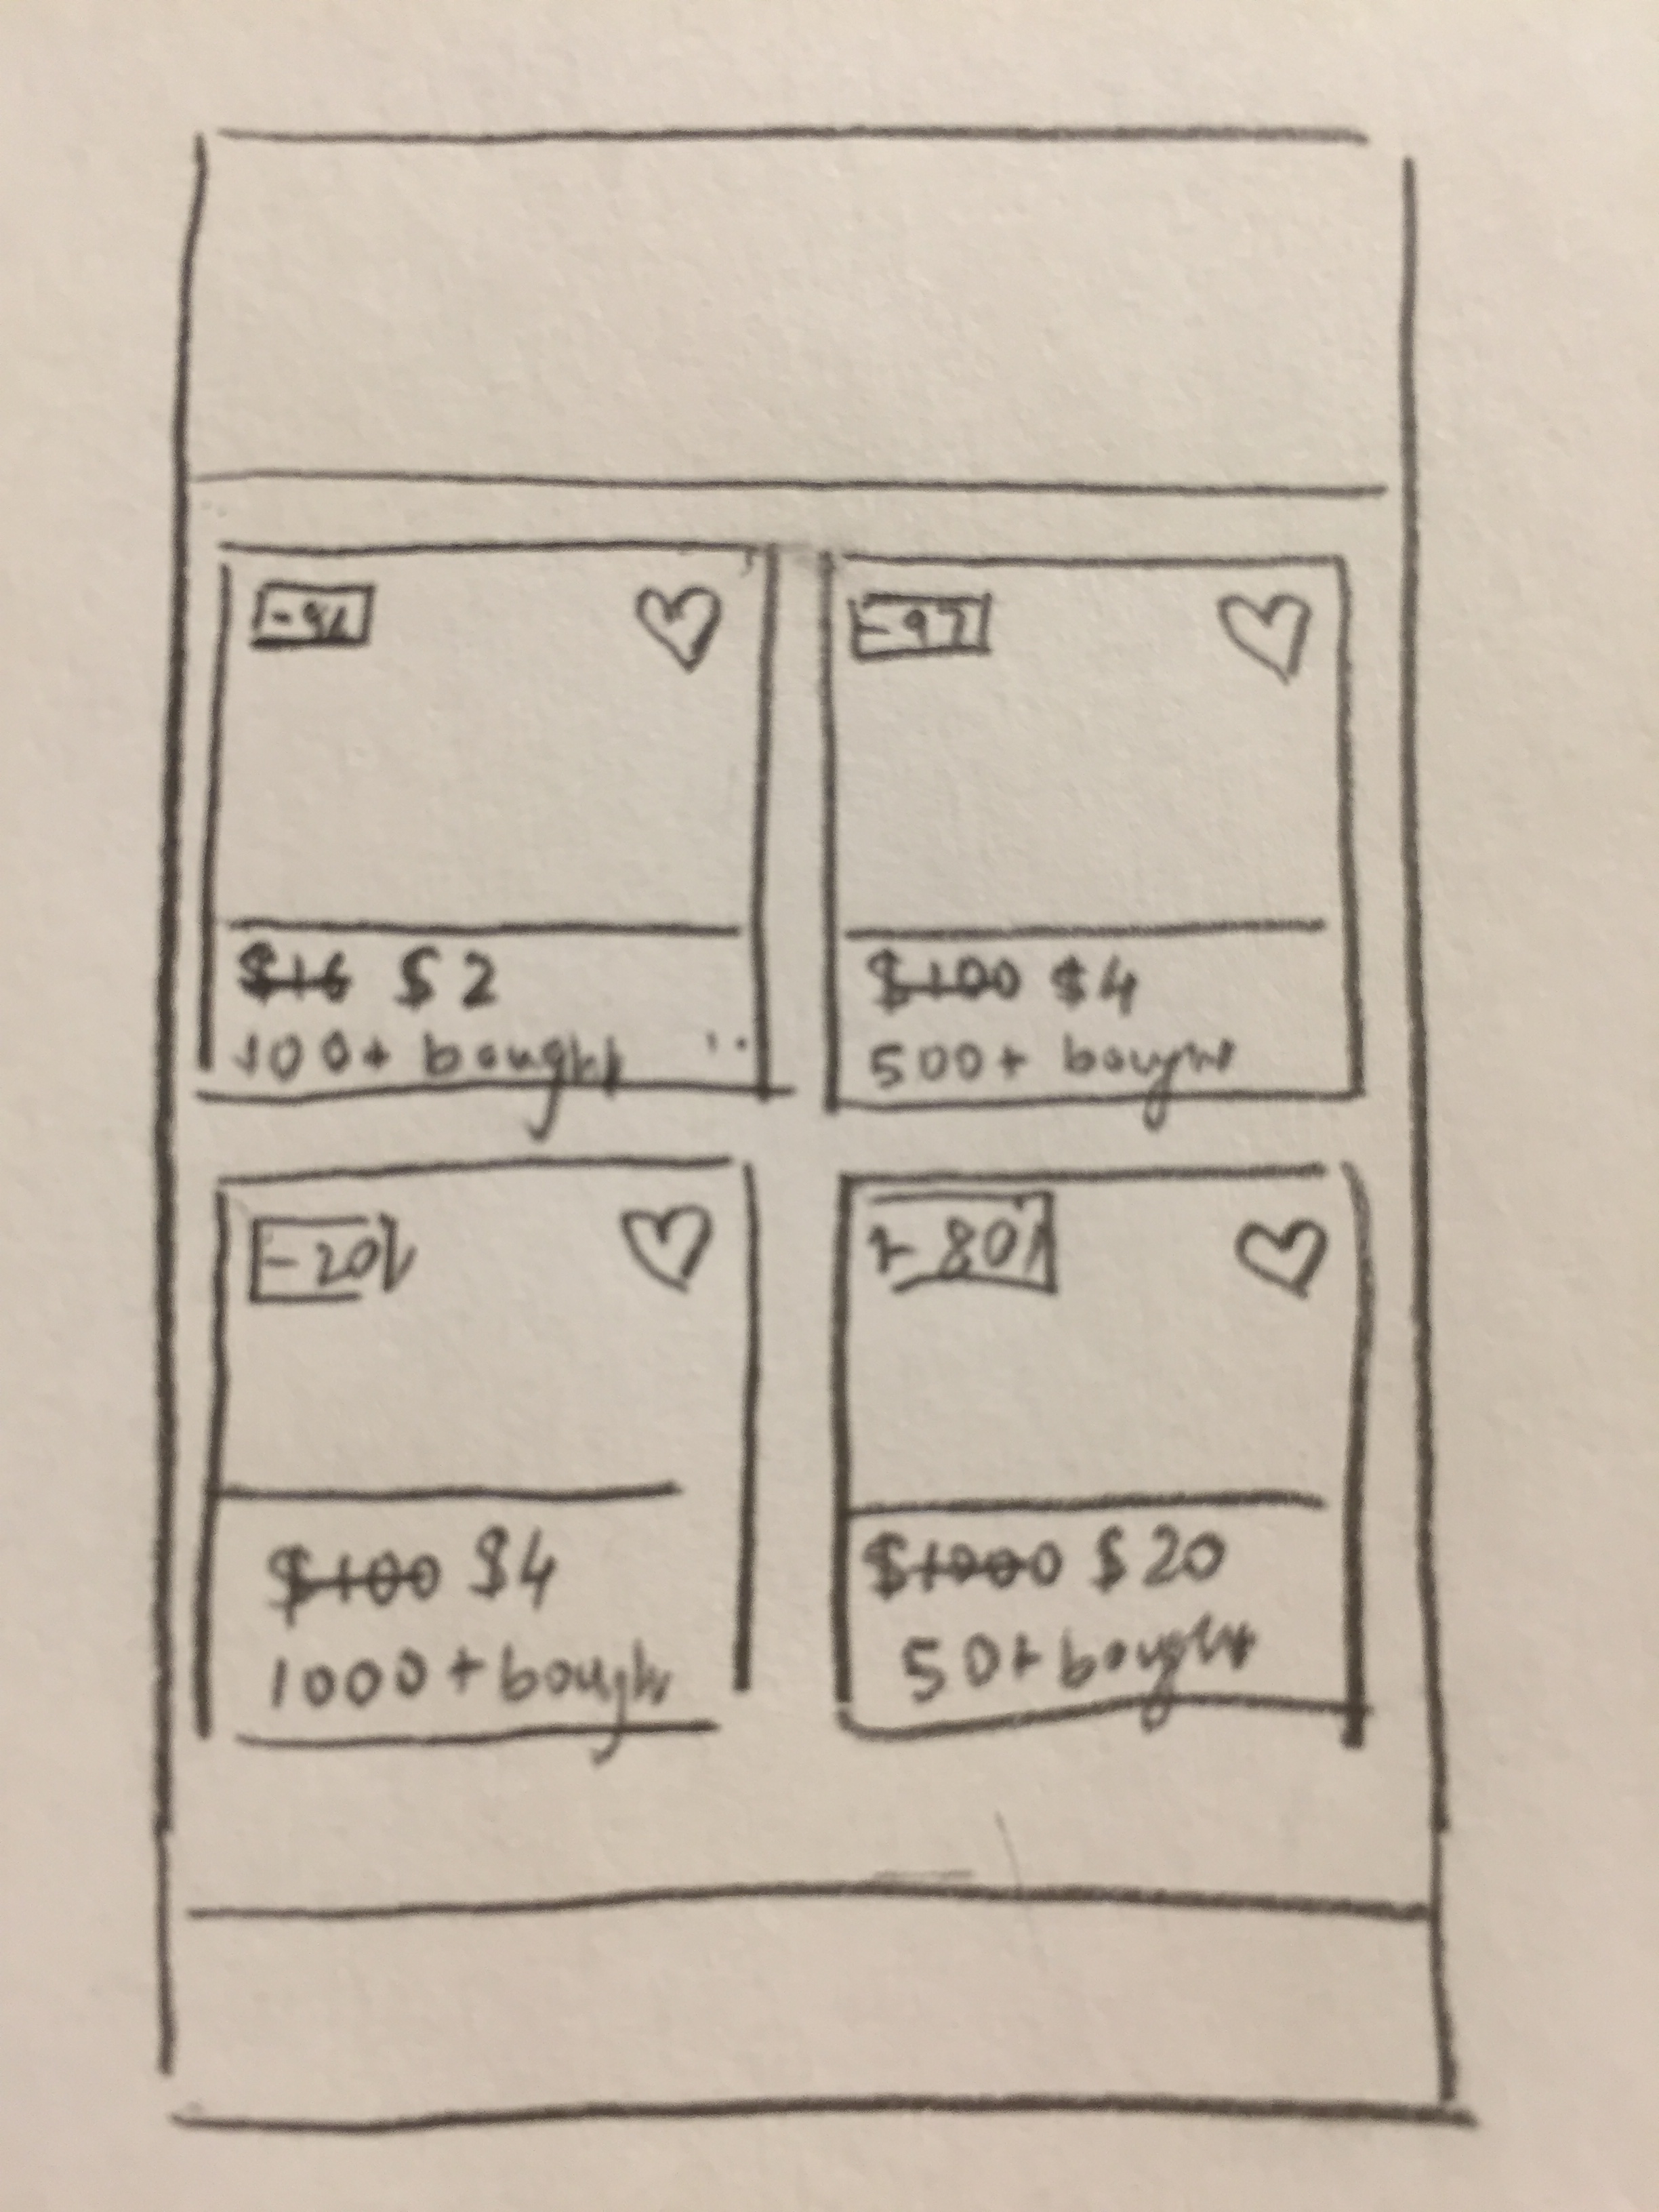 $16 $2
100+ bought
$100 $4
500+ bought
-20%
$100 $4
1000+ bought
-80%
$1000 $20
50+ bought